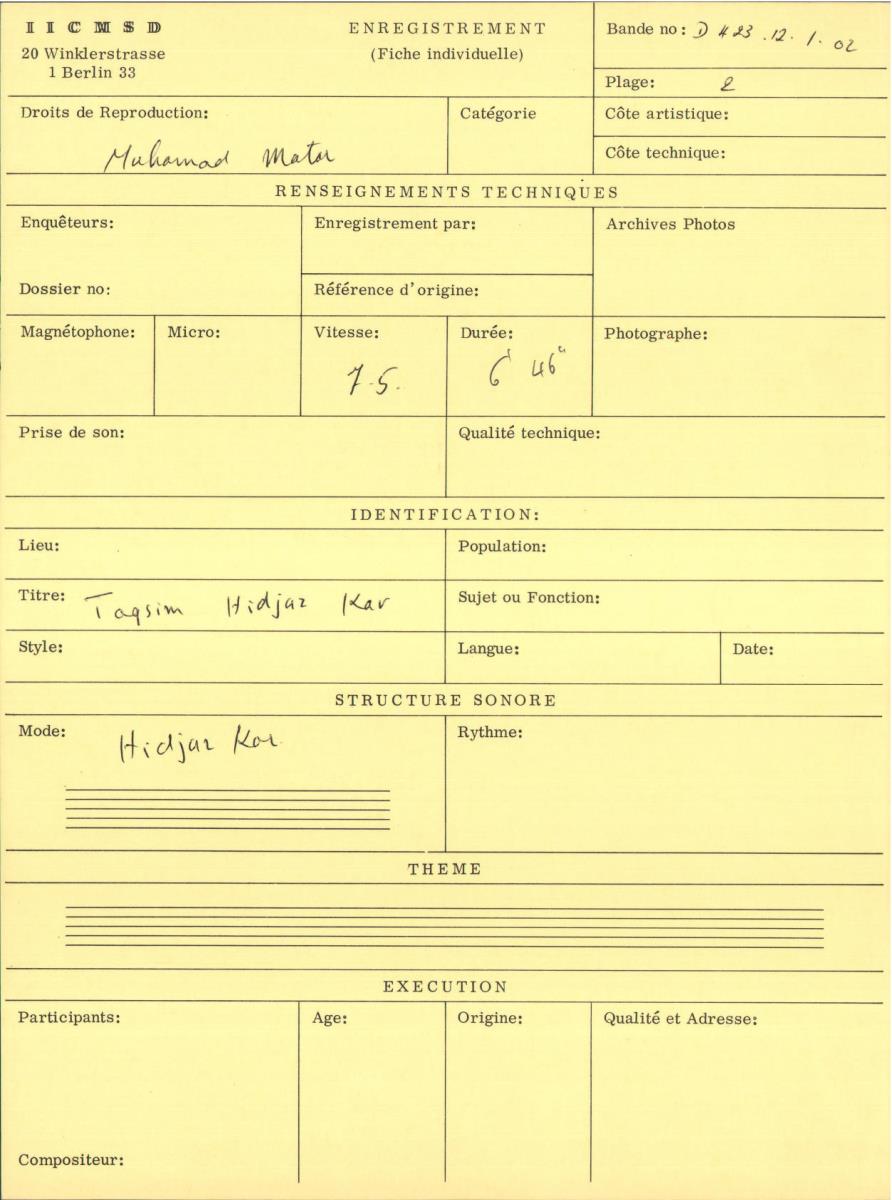 IICMSD
20 Winklerstrasse
1 Berlin 33
ENREGISTREMENT
(Fiche individuelle)
Bande no: D 423.12.1.02
Plage: 2
Droits de Reproduction:
Muhamad Matar
Catégorie
Côte artistique:
Côte technique:
RENSEIGNEMENTS TECHNIQUES
Enquêteurs:
Enregistrement par:
Archives Photos
Dossier no:
Référence d'origine:
Magnétophone:
Micro:
Vitesse:
7.5.
Durée:
6' 46"
Photographe:
Prise de son:
Qualité technique:
IDENTIFICATION:
Lieu:
Population:
Titre: Taqsim Hidjaz Kar
Sujet ou Fonction:
Style:
Langue:
Date:
STRUCTURE SONORE
Mode: Hidjaz Kar
Rythme:
THEME
EXECUTION
Participants:
Age:
Origine:
Qualité et Adresse:
Compositeur: